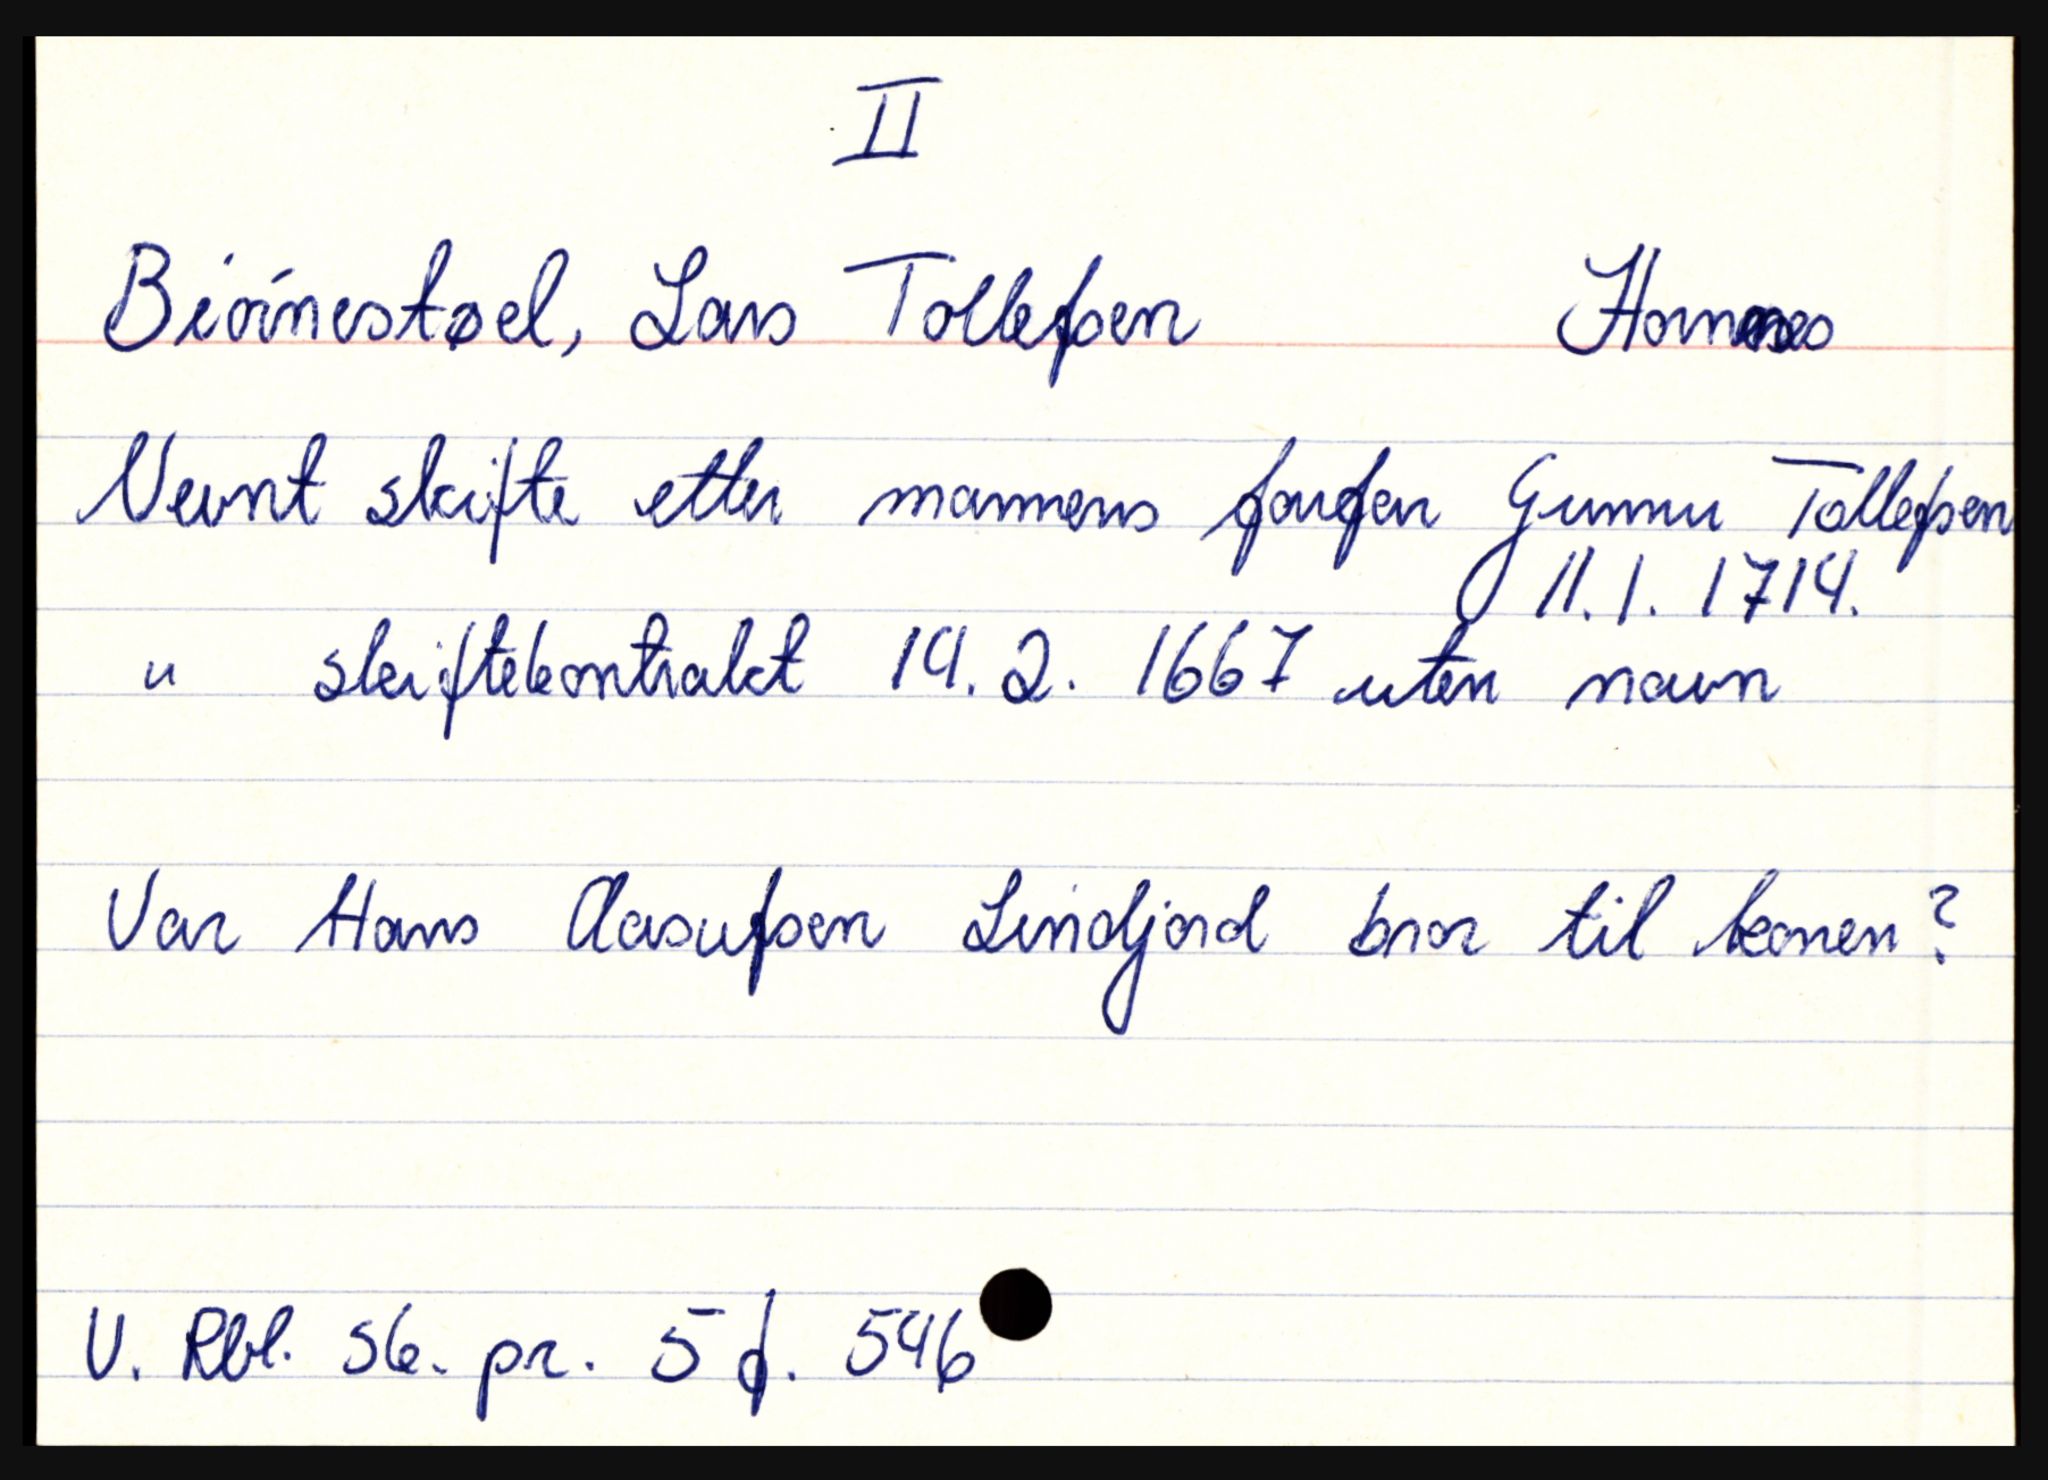 II
Biörnestøel, Lars Tollefsen Hornnes
Nevnt skifte etter mannens farfar Gunner Tollefsen
11.1.1714.
" skiftekontrakt 14.2.1667 uten navn
Var Hans Aasufsen Lindjord bror til konen?
V. Rbl. sk. pr. 5 f. 546